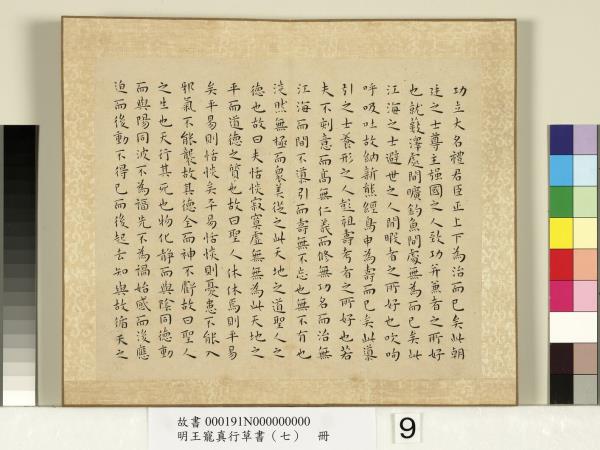 功立大名禮君臣正上下為治而已矣此朝
廷之士尊主强國之人致功并兼者之所好
也就藪澤處閒曠釣魚閒處無為而已矣此
江海之士避世之人閒暇者之所好也吹呴
呼吸吐故納新熊經鳥申為壽而已矣此導
引之士養形之人彭祖壽考者之所好也若
夫不刻意而高無仁義而修無功名而治無
江海而閒不導引而壽無不忘也無不有也
淡然無極而衆美從之此天地之道聖人之
德也故曰夫恬惔寂寞虛無無為此天地之
平而道德之質也故曰聖人休休焉則平易
矣平易則恬惔矣平易恬惔則憂患不能入
邪氣不能襲故其德全而神不虧故曰聖人
之生也天行其死也物化靜而與陰同德動
而與陽同波不為福先不為禍始感而後應
迫而後動不得已而後起去知與故循天之
故書 000191N000000000
明王寵真行草書（七） 冊
9